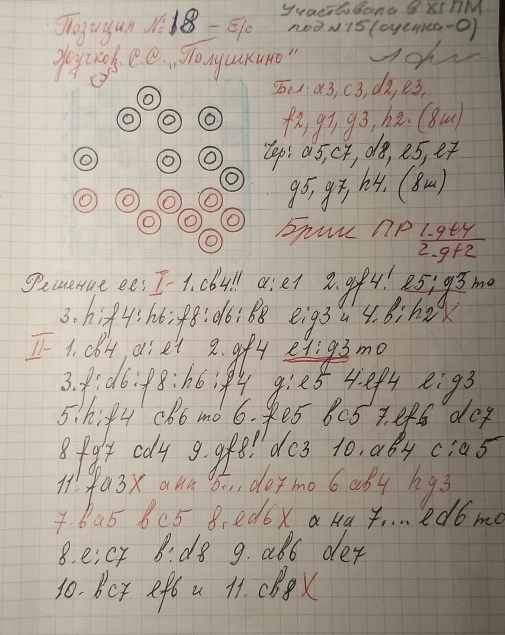 Позиция № 18 – б/с
Участвовала в XI ПМ
под №15 (оценка-0)
Жучков. С.С. „Полушкино"
Бел: а3, с3, d2, е3,
f2, g1, g3, h2. (8ш)
Чер: а5, с7, d8, е5, е7
g5, g7, h4. (8ш)
Брик ПР 1.gf4
2.gf2
Решение ее: I- 1. cb4!! a:e1 2. gf4! e5:g3 то
3. h:f4:h6:f8:d6:b8 e:g3 и 4. b:h2X
II- 1. cb4 a:e1 2. gf4 e1:g3 то
3. f:d6:f8:h6:f4 g:e5 4. ef4 e:g3
5. h:f4 cb6 то 6. fe5 bc5 7. ef6 dc7
8 fg7 cd4 9. gf8! dc3 10. ab4 c:a5
11. fa3X а на 5... de7 то 6. ab4 hg3
7. ba5 bc5 8. ed6X а на 7.... ed6 то
8. e:c7 b:d8 9. ab6 de7
10. bc7 ef6 и 11. cb8X